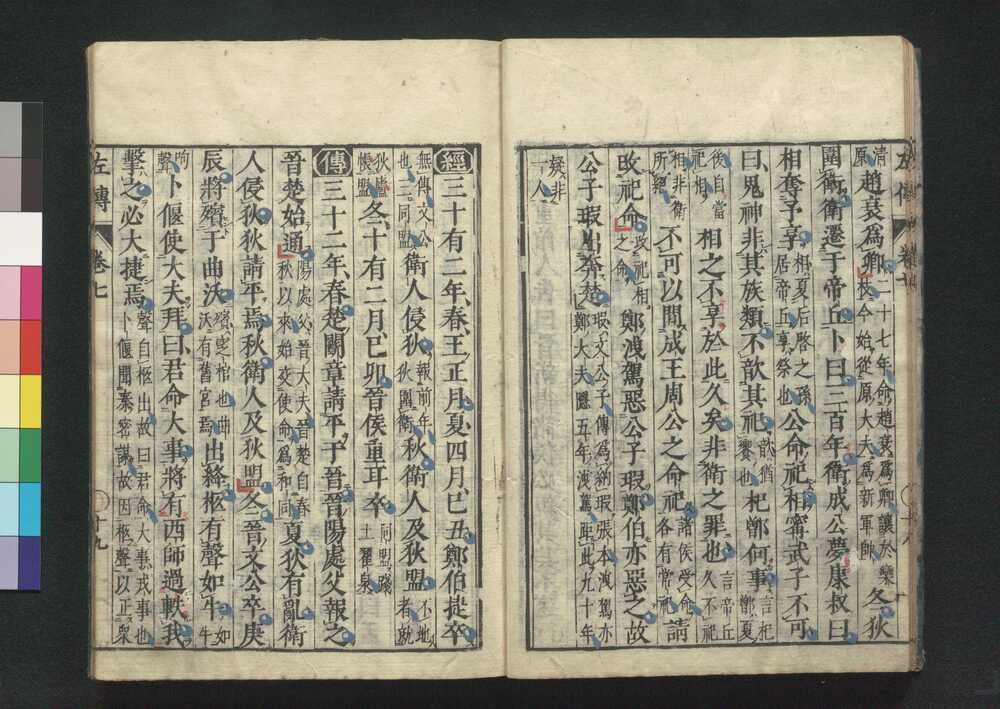 清原趙衰爲卿二十七年命趙衰爲卿讓於欒枝今始從原大夫爲新軍帥冬狄
圍衛衛遷于帝丘卜曰三百年衛成公夢康叔曰
相奪予享相夏后啓之孫居帝丘享祭也公命祀相甯武子不可
曰鬼神非其族類不歆其祀歆猶饗也杞鄫何事言杞鄫夏
後自當祀相相之不享於此久矣非衛之罪也言帝丘久不祀
相非衛所絕不可以間成王周公之命祀諸侯受命各有常祀請
改祀命改祀相之命鄭洩駕惡公子瑕鄭伯亦惡之故
公子瑕出奔楚瑕文公子傳爲納瑕張本洩駕亦鄭大夫隱五年洩駕距此九十年
疑非一人
經三十有二年春王正月夏四月己丑鄭伯捷卒
無傳文公也三同盟衛人侵狄報前年狄圍衛秋衛人及狄盟不地者就
狄廬帳盟冬十有二月己卯晉侯重耳卒同盟踐土翟泉
傳三十二年春楚鬬章請平于晉晉陽處父報之
晉楚始通陽處父晉大夫晉楚自春秋以來始交使命爲和同夏狄有亂衛
人侵狄狄請平焉秋衛人及狄盟冬晉文公卒庚
辰將殯于曲沃殯窆棺也曲沃有舊宮焉出絳柩有聲如牛如牛
呴聲卜偃使大夫拜曰君命大事將有西師過軼我
擊之必大捷焉聲自柩出故曰君命大事戎事也卜偃聞秦密謀故因柩聲以正衆
左傳 卷七 十九